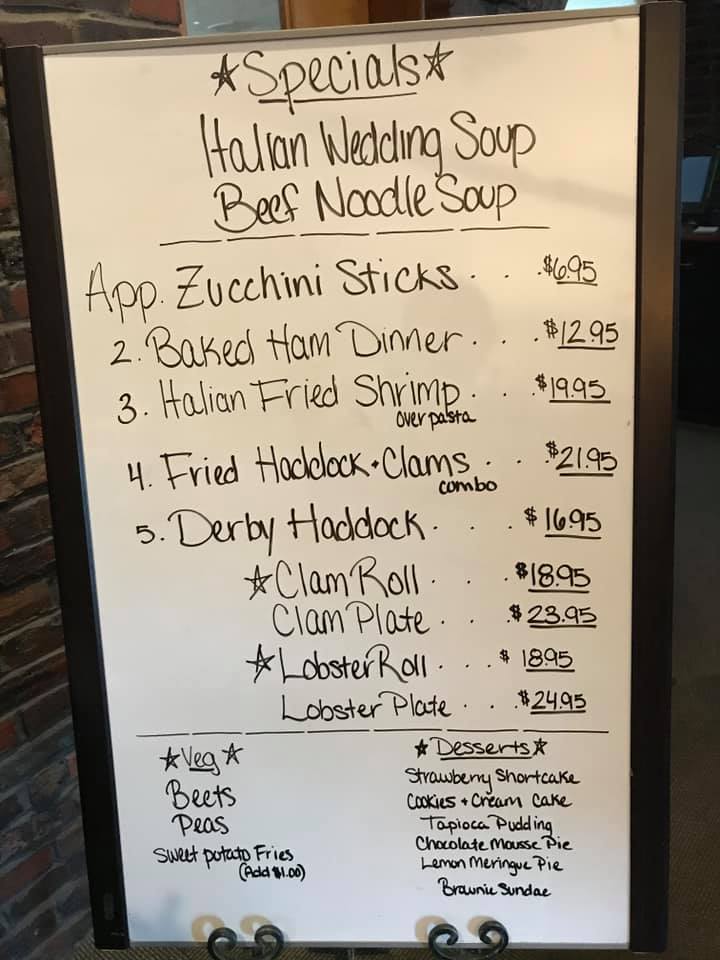 ☆Specials☆
Italian Wedding Soup
Beef Noodle Soup
App. Zucchini Sticks . . . $6.95
2. Baked Ham Dinner . . . $12.95
3. Italian Fried Shrimp . . . $19.95
over pasta
4. Fried Haddock + Clams . . $21.95
combo
5. Derby Haddock . . . $16.95
☆ Clam Roll . . . $18.95
Clam Plate . . . $23.95
☆ Lobster Roll . . . $18.95
Lobster Plate . . . $24.95
☆Veg☆
Beets
Peas
Sweet potato Fries
(Add $1.00)
☆Desserts☆
Strawberry Shortcake
Cookies + Cream Cake
Tapioca Pudding
Chocolate Mousse Pie
Lemon Meringue Pie
Brownie Sundae